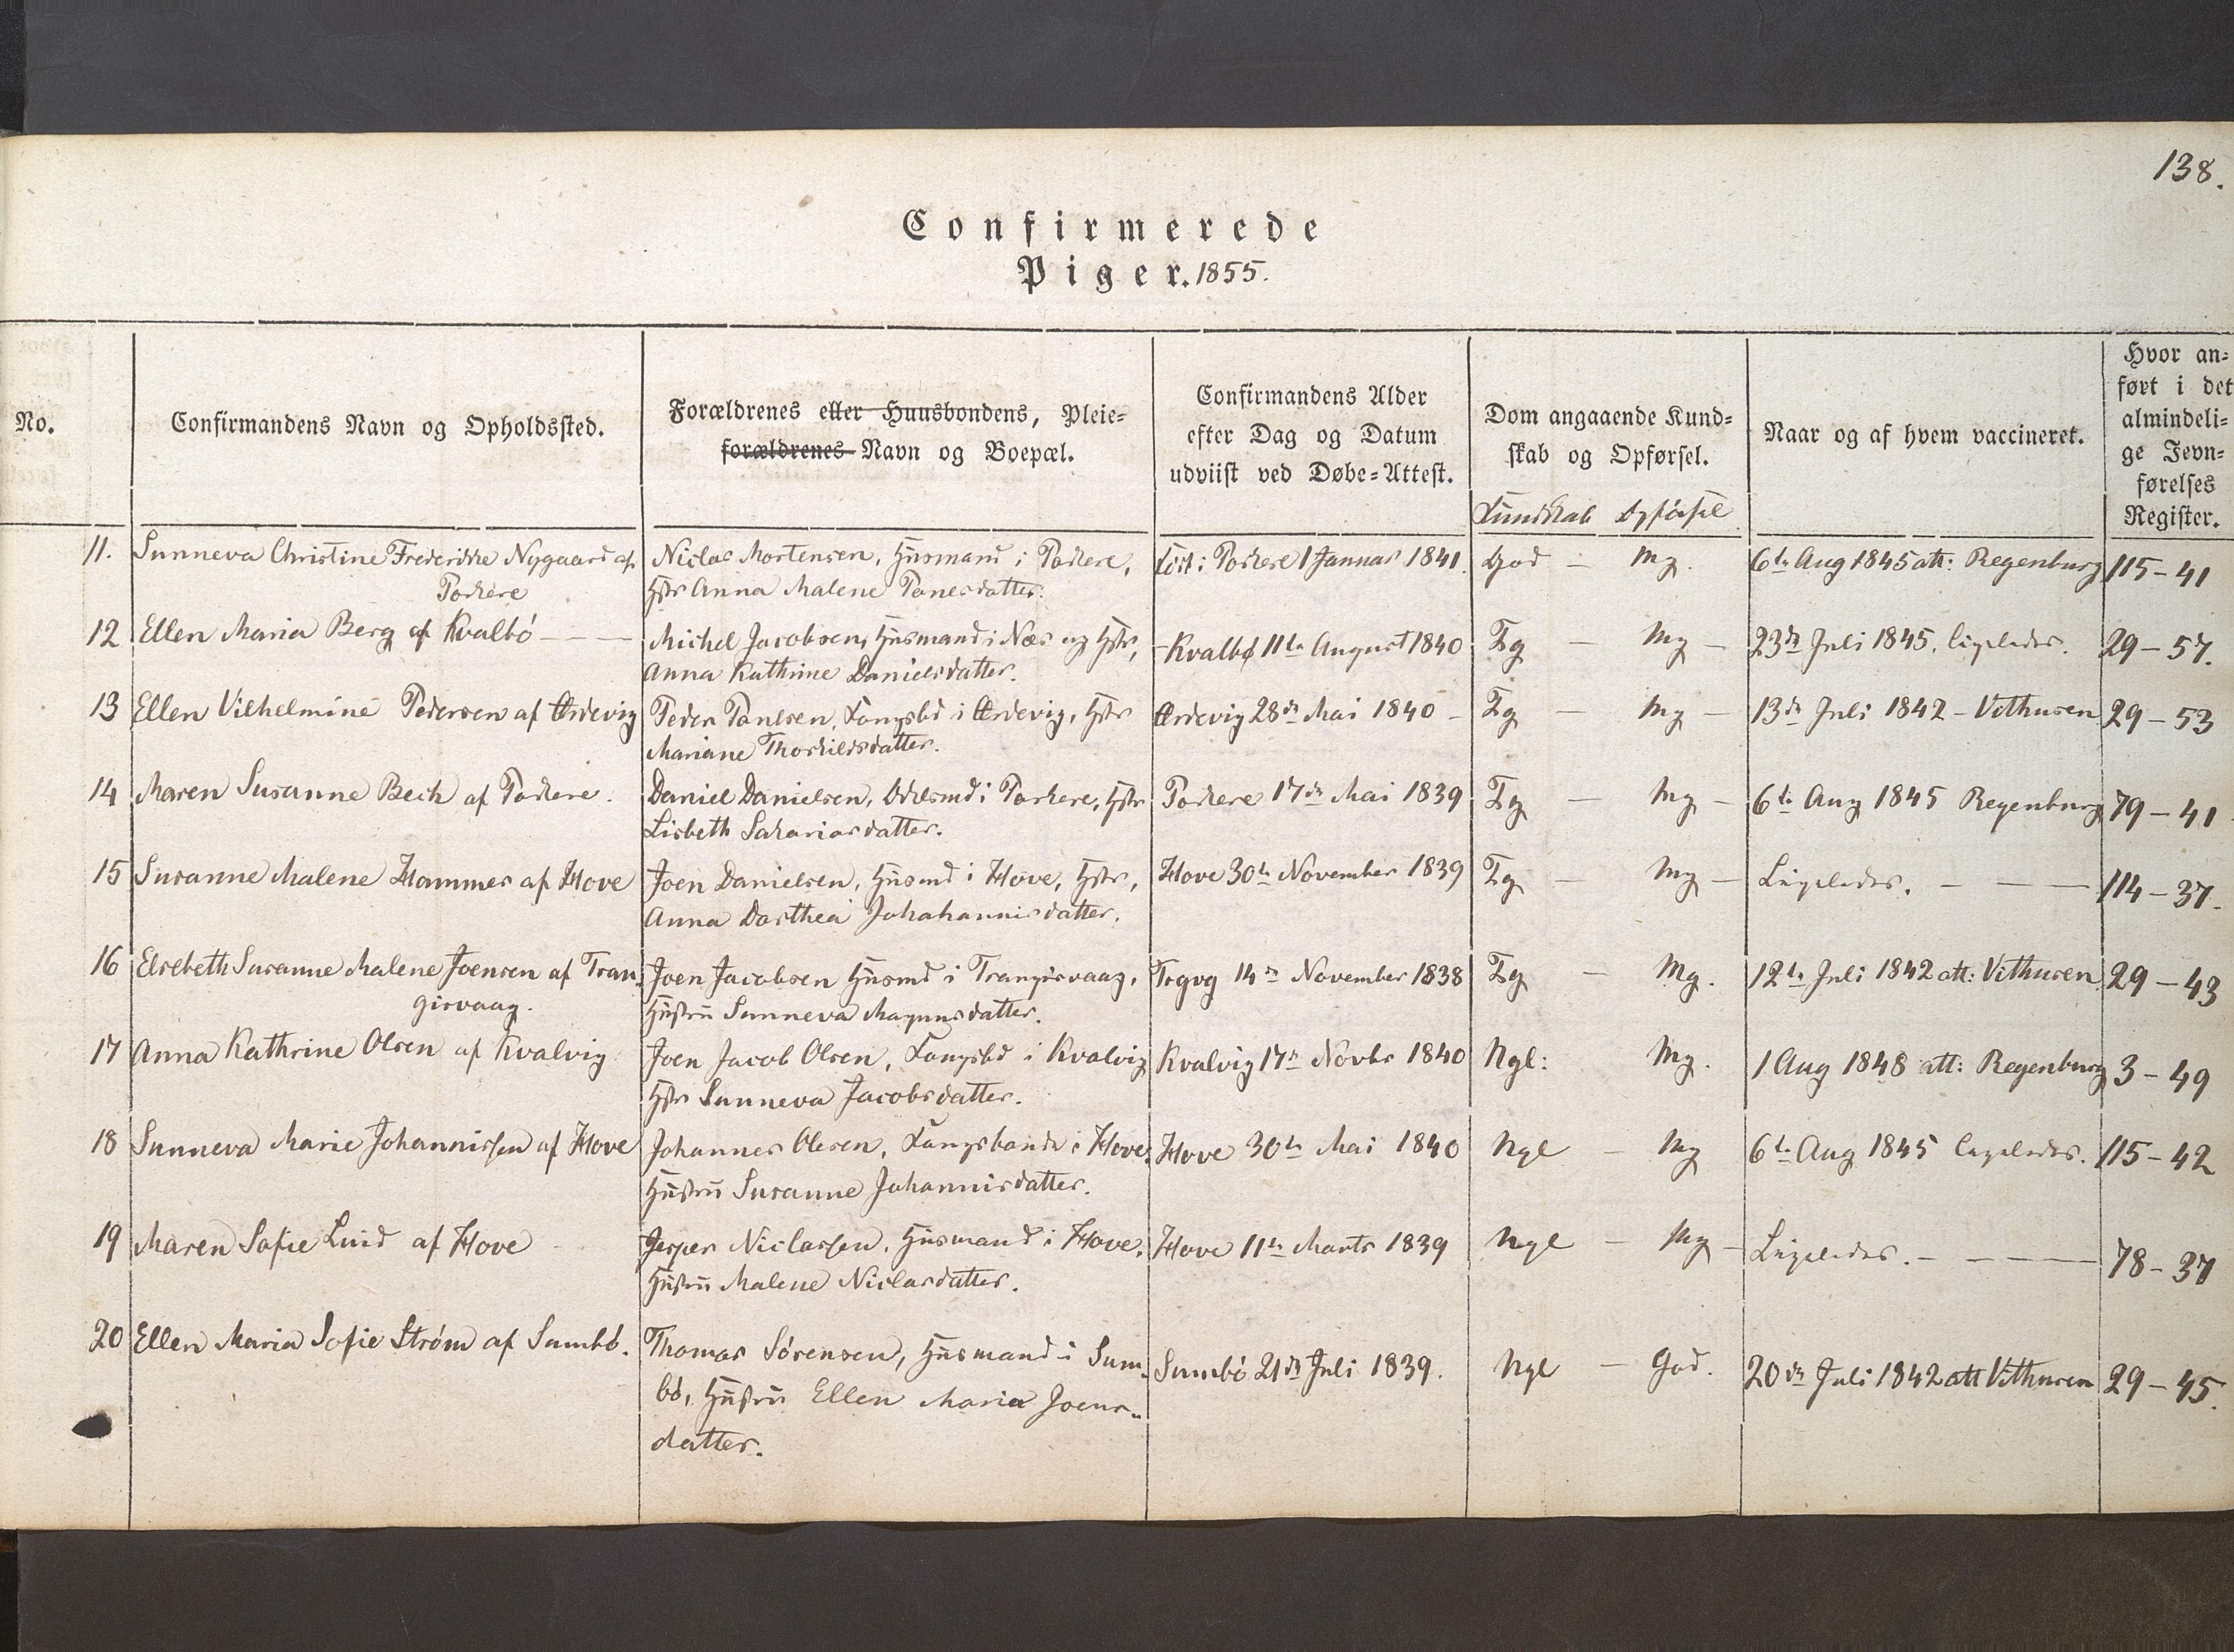 138.
Confirmerede
Piger. 1855.
No.
Confirmandens Navn og Opholdssted.
Forældrenes eller Huusbondens, Pleie-
forældrenes Navn og Boepæl.
Confirmandens Alder
efter Dag og Datum
udviist ved Døbe-Attest.
Dom angaaende Kund-
skab og Opførsel.
Kundskab Opførsel
Naar og af hvem vaccineret.
Hvor an-
ført i det
almindeli-
ge Jevn-
førelses
Register.
11. Sunneva Christine Frederikke Nygaard af
Porkere
Niclas Mortensen, Husmand i Porkere,
Hstr Anna Malene Poulesdatter.
født i Porkere 1 Januar 1841.
God - Mg.
6te Aug 1845 att: Regenburg
115-41
12 Ellen Maria Berg af Kvalbø
Michel Jacobsen, Husmand i Næs og Hstr,
Anna Kathrine Danielsdatter.
Kvalbø 11te August 1840
Tg - Mg -
23de Juli 1845, ligeledes.
29-57.
13 Ellen Vilhelmine Pedersen af Ørdevig
Peder Poulsen, Kongsbd i Ørdevig, Hstr
Mariane Thorkildsdatter.
Ørdevig 28de Mai 1840 -
Tg - Mg -
13de Juli 1842 - Vithusen
29-53
14 Maren Susanne Bech af Porkere.
Daniel Danielsen, Odelsmd i Porkere, Hstr
Lisbeth Sakariasdatter.
Porkere 17de Mai 1839
Tg - Mg -
6te Aug 1845 Regenburg
79-41
15 Susanne Malene Hammer af Hove
Joen Danielsen, Husmd i Hove, Hstr,
Anna Dorthea Johahannisdatter.
Hove 30te November 1839
Tg - Mg -
Ligeledes. - - -
114-37.
16 Elsebeth Susanne Malene Joensen af Tran-
gisvaag.
Joen Jacobsen Husmd i Trangisvaag,
Hustru Sunneva Magnusdatter.
Trgvg 14de November 1838
Tg - Mg.
12te Juli 1842 att: Vithusen
29-43
17 Anna Kathrine Olsen af Kvalvig
Joen Jacob Olsen, Kongsbd i Kvalvig
Hstr Sunneva Jacobsdatter.
Kvalvig 17de Novbr 1840
Ngl: Mg.
1 Aug 1848 att: Regenburg
3-49
18 Sunneva Marie Johannissen af Hove
Johannes Olesen, Kongsbonde i Hove,
Hustru Susanne Johannisdatter.
Hove 30te Mai 1840
Ngl - Mg
6te Aug 1845 ligeledes.
115-42
19 Maren Sofie Lind af Hove
Jesper Niclassen, Husmand i Hove,
Hustru Malene Niclasdatter.
Hove 11te Marts 1839
Ngl - Mg -
Ligeledes. - - -
78-37
20 Ellen Maria Sofie Strøm af Sumbø.
Thomas Sörensen, Husmand i Sum-
bø, Hustru Ellen Maria Joens-
datter.
Sumbø 21de Juli 1839.
Ngl - God.
20de Juli 1842 att Vithusen
29-45.